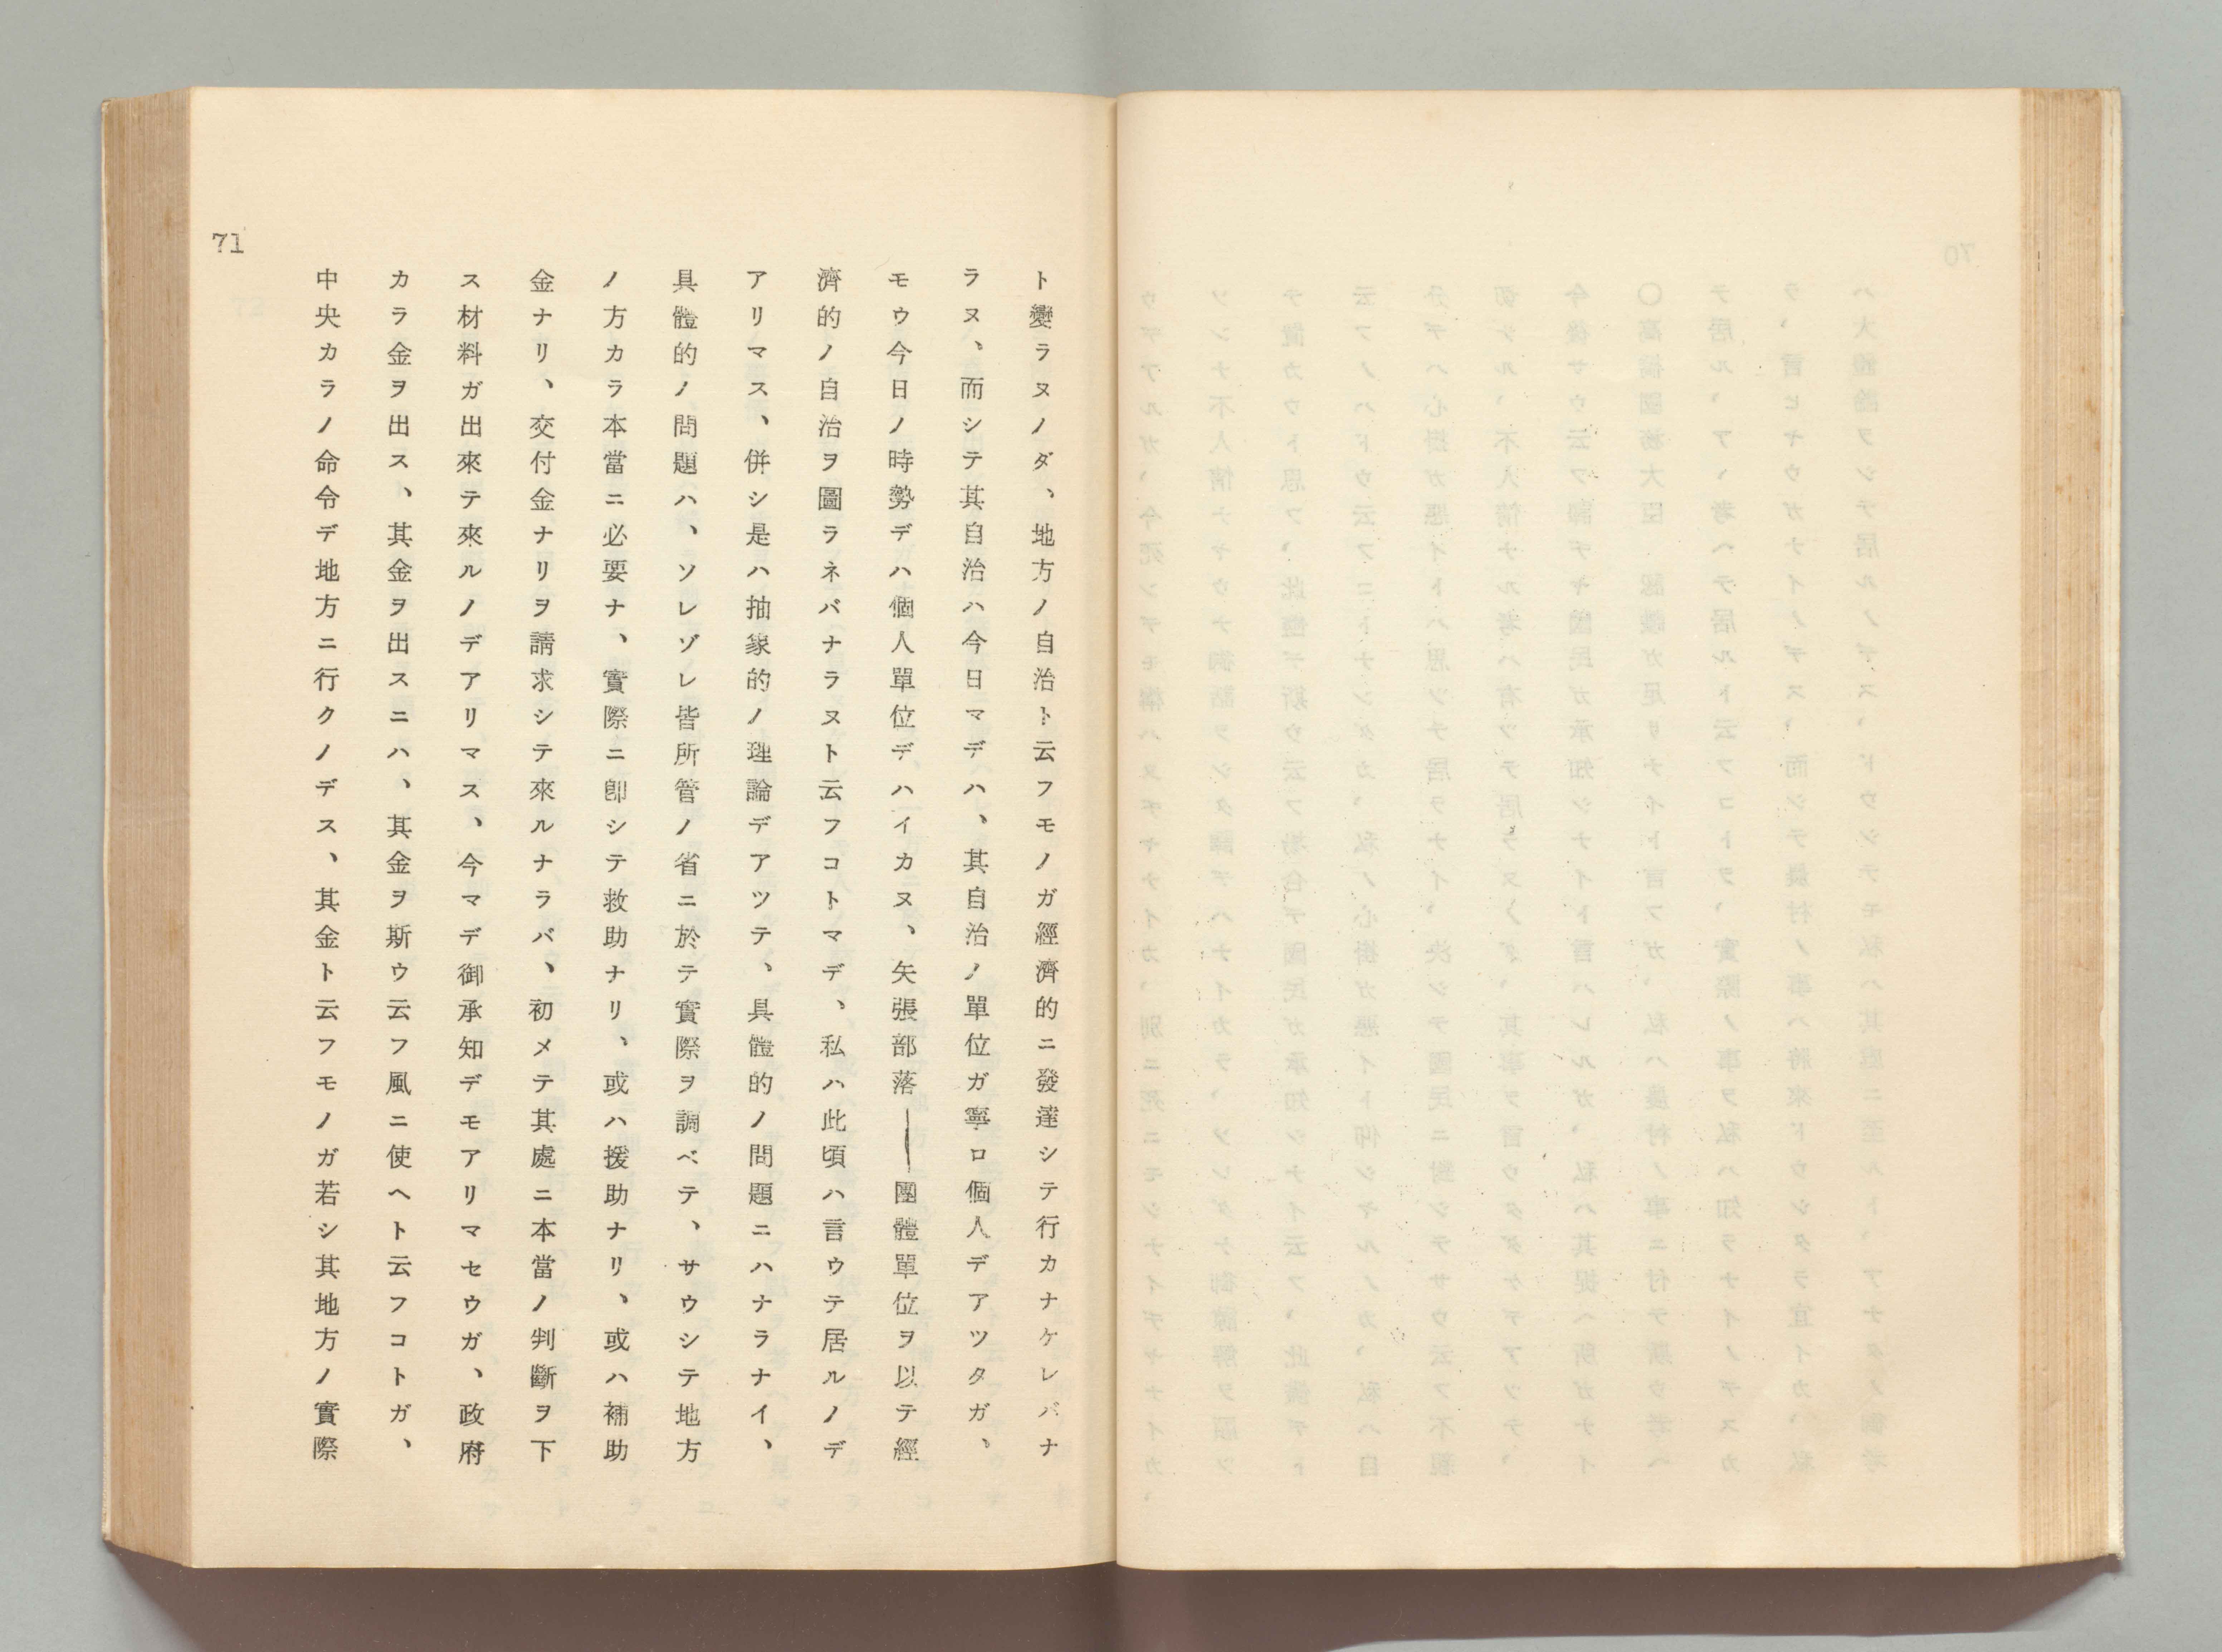 71
ト變ラヌノダ、地方ノ自治ト云フモノガ經濟的ニ發達シテ行カナケレバナ
ラヌ、而シテ其自治ハ今日マデハ、其自治ノ單位ガ寧ロ個人デアツタガ、
モウ今日ノ時勢デハ個人單位デハイカヌ、矢張部落――團體單位ヲ以テ經
濟的ノ自治ヲ圖ラネバナラヌト云フコトマデ、私ハ此頃ハ言ウテ居ルノデ
アリマス、併シ是ハ抽象的ノ理論デアツテ、具體的ノ問題ニハナラナイ、
具體的ノ問題ハ、ソレゾレ皆所管ノ省ニ於テ實際ヲ調ベテ、サウシテ地方
ノ方カラ本當ニ必要ナ、實際ニ卽シテ救助ナリ、或ハ援助ナリ、或ハ補助
金ナリ、交付金ナリヲ請求シテ來ルナラバ、初メテ其處ニ本當ノ判斷ヲ下
ス材料ガ出來テ來ルノデアリマス、今マデ御承知デモアリマセウガ、政府
カラ金ヲ出ス、其金ヲ出スニハ、其金ヲ斯ウ云フ風ニ使ヘト云フコトガ、
中央カラノ命令デ地方ニ行クノデス、其金ト云フモノガ若シ其地方ノ實際